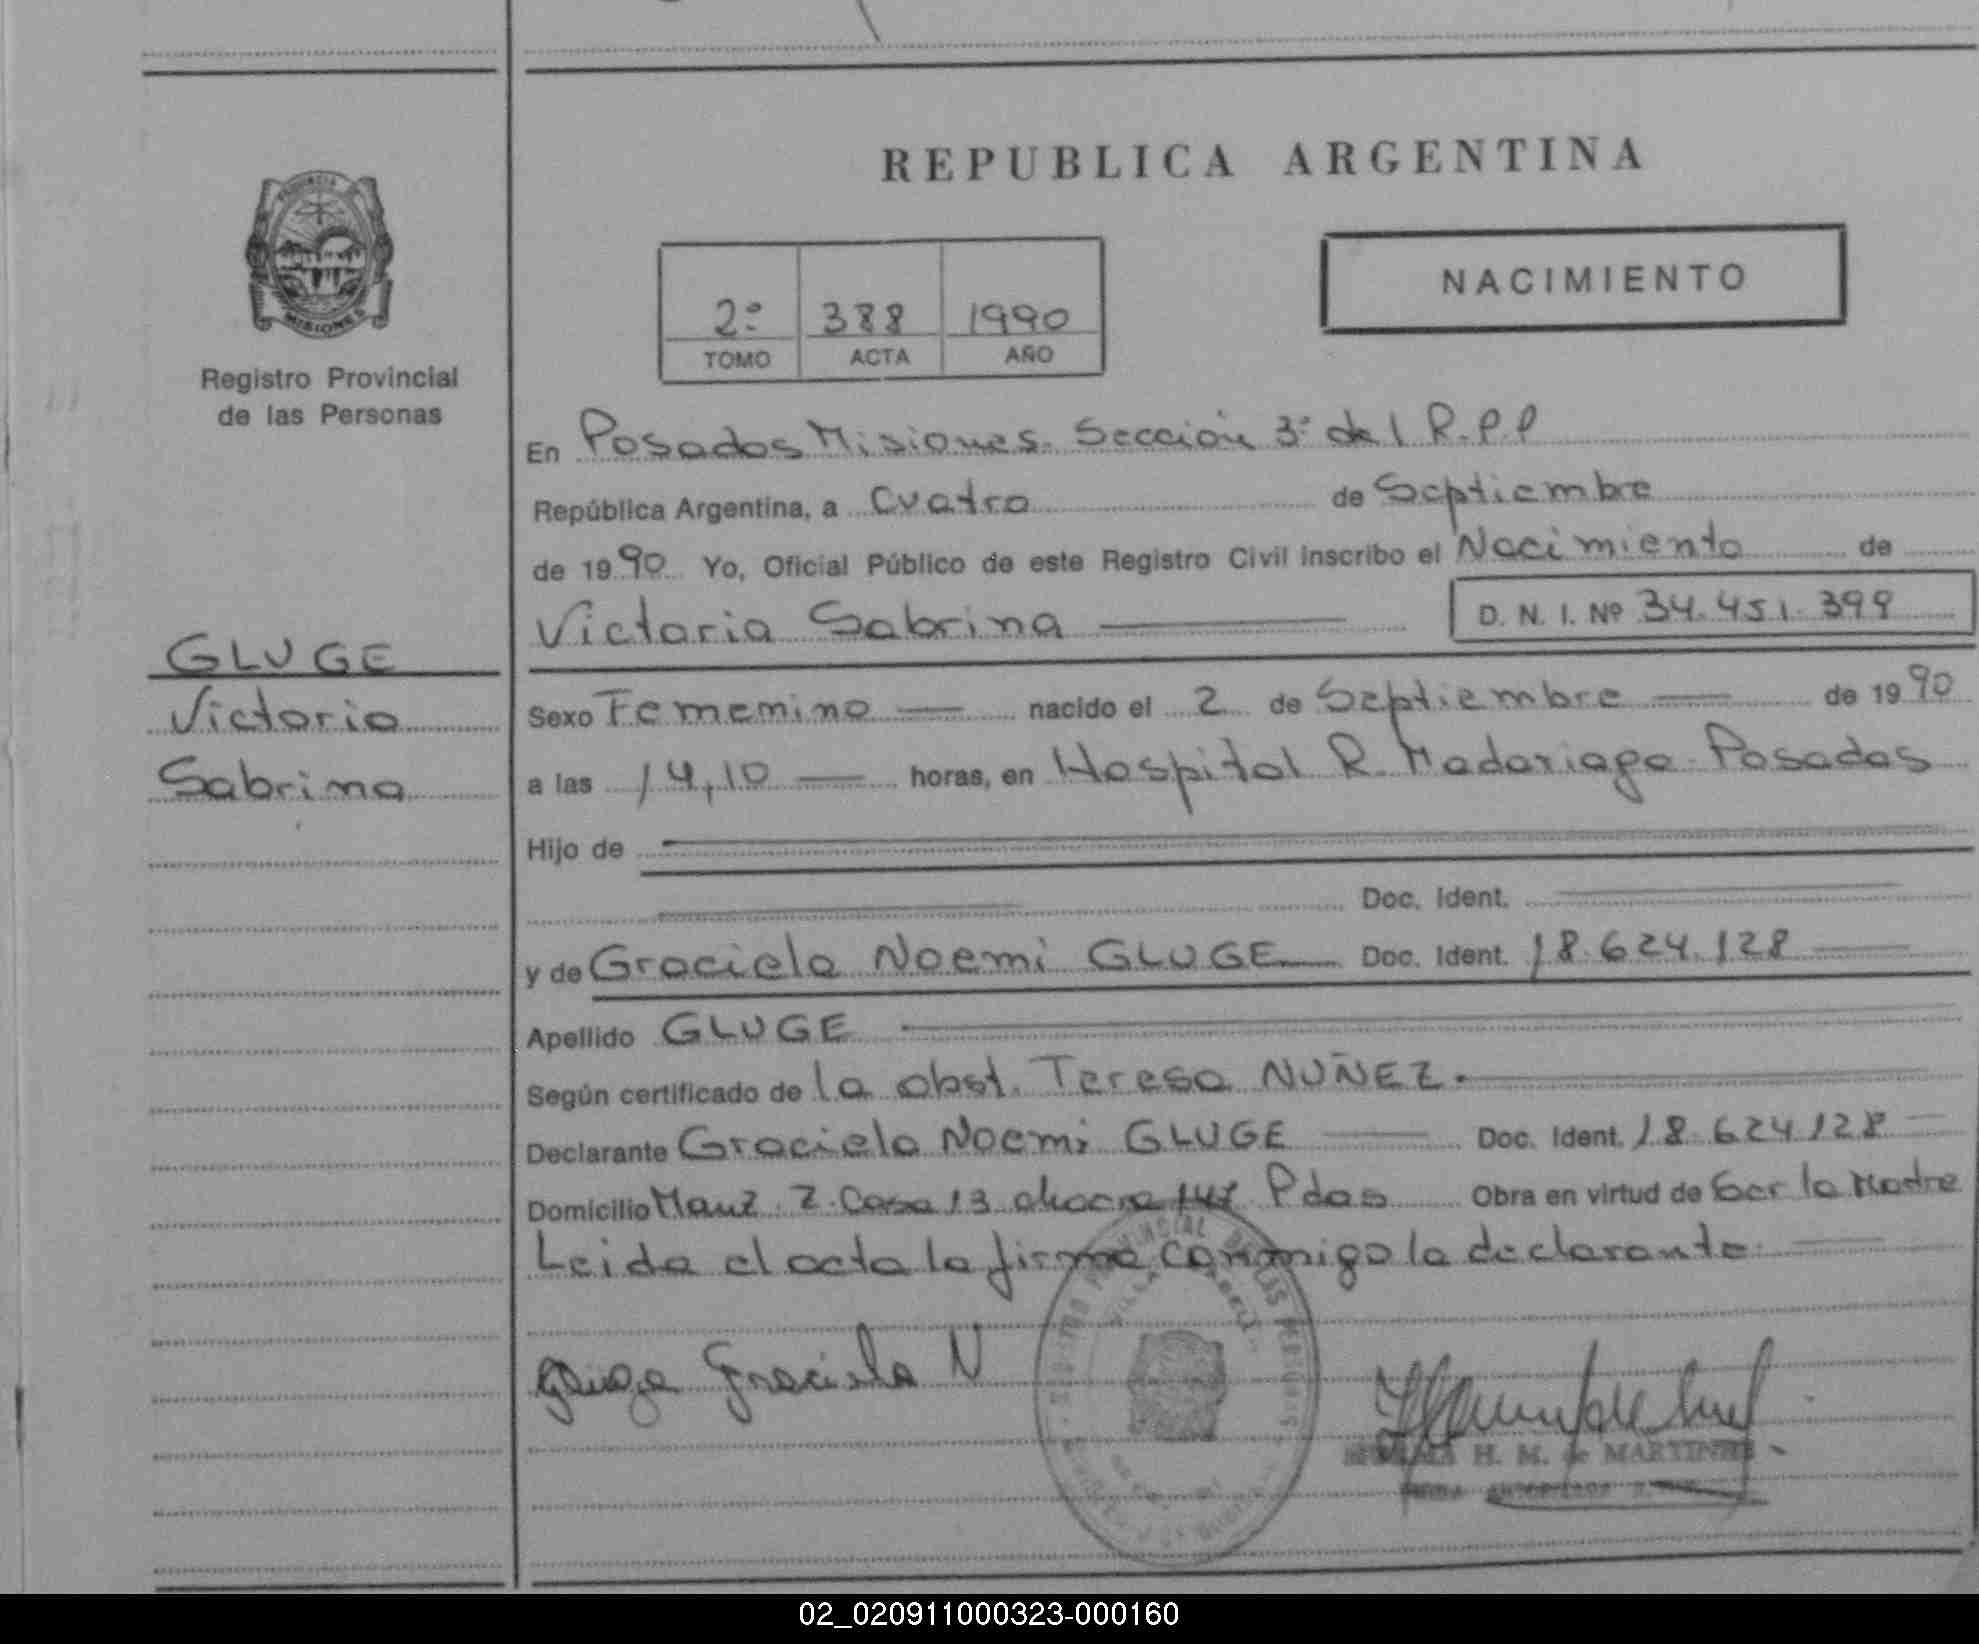 REPUBLICA ARGENTINA
NACIMIENTO
2º 388 1990
TOMO ACTA AÑO
PROVINCIA
MISIONES
Registro Provincial
de las Personas
GLUGE
Victoria
Sabrina
En Posadas Misiones. Sección 3º del R.P.P
República Argentina, a Cuatro de Septiembre
de 1990 Yo, Oficial Público de este Registro Civil inscribo el Nacimiento de
Victoria Sabrina D. N. I. Nº 34.451.399
Sexo Femenino nacido el 2 de Septiembre de 1990
a las 14,10 horas, en Hospital R. Madariaga Posadas
Hijo de
Doc. Ident.
y de Graciela Noemi GLUGE Doc. Ident. 18.624.128
Apellido GLUGE
Según certificado de la obst. Teresa NUÑEZ.
Declarante Graciela Noemi GLUGE Doc. Ident. 18.624128
Domicilio Manz. Z. Casa 13 chacra 147 Pdas Obra en virtud de Ser la Madre
Leida el acta la firma conmigo la declarante.
Graciela N
H. M. de MARTINEZ
02_020911000323-000160